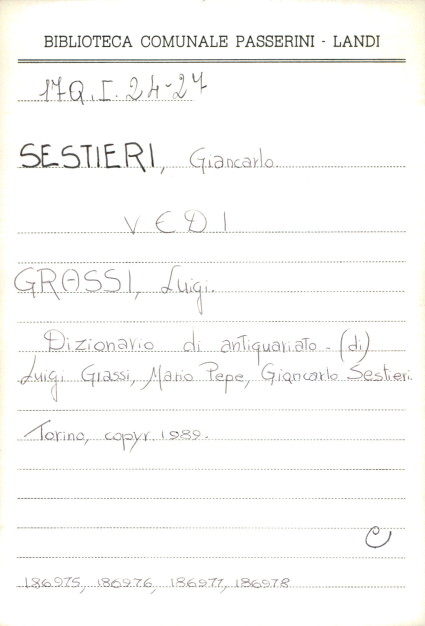 BIBLIOTECA COMUNALE PASSERINI - LANDI
17Q.I.24-27
SESTIERI, Giancarlo.
VEDI
GRASSI, Luigi.
Dizionario di antiquariato - (di)
Luigi Grassi, Mario Pepe, Giancarlo Sestieri.
Torino, copyr. 1989.
C
186975, 186976, 186977, 186978